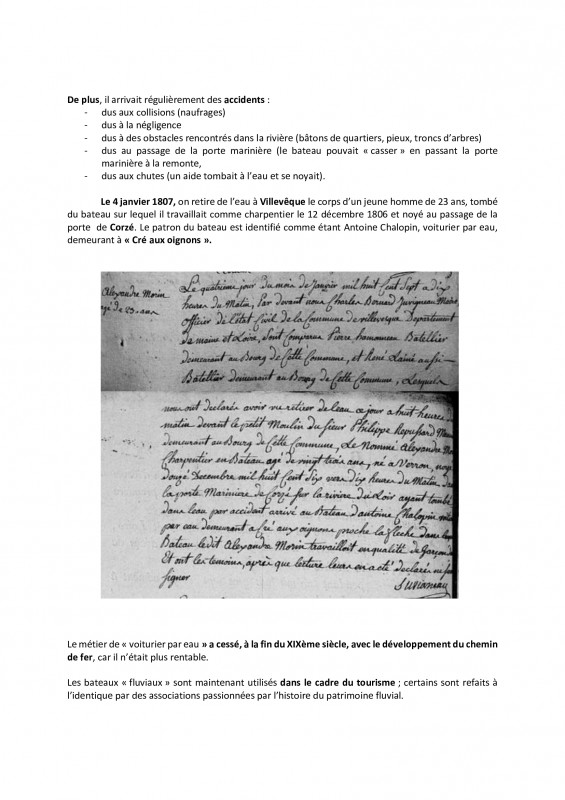 De plus, il arrivait régulièrement des accidents :
- dus aux collisions (naufrages)
- dus à la négligence
- dus à des obstacles rencontrés dans la rivière (bâtons de quartiers, pieux, troncs d'arbres)
- dus au passage de la porte marinière (le bateau pouvait « casser » en passant la porte
marinière à la remonte,
- dus aux chutes (un aide tombait à l'eau et se noyait).
Le 4 janvier 1807, on retire de l'eau à Villevêque le corps d'un jeune homme de 23 ans, tombé
du bateau sur lequel il travaillait comme charpentier le 12 décembre 1806 et noyé au passage de la
porte de Corzé. Le patron du bateau est identifié comme étant Antoine Chalopin, voiturier par eau,
demeurant à « Cré aux oignons ».
Alexandre Morin
agé de 23. ans
Le quatrieme jour du mois de Janvier mil huit Cent Sept a dix
heures du Matin, Par devant nous Charles Bernard Juvigneau Maire
officier de l'état Civil de la Commune de villevesque Departement
de maine et Loire, Sont Comparus Pierre hamonneau Batellier
demeurant au Bourg de Cette Commune, et René Lainé aussi
Batellier demeurant au Bourg de Cette Commune, Lesquels
nous ont declarés avoir vu retirer de leau ce jour a huit heures du
matin devant le petit Moulin du Sieur Philippe Repussard
demeurant au Bourg de Cette Commune, Le Nommé Alexandre
Charpentier en Bateau agé de vingt trois ans, né a Verron, noyé
douze Decembre mil huit Cent Six vers dix heures du Matin dans
la porte Mariniere de Corzé sur la riviere du Loir ayant tombé
dans leau par accident arrivé au Bateau d'antoine Chalopin
par eau demeurant a Cré aux oignons proche la fleche dans lequel
Bateau ledit Alexandre Morin travailloit en qualité de Garçon
Et ont les temoins, après que lecture leur en a été declarés ne
signer
Juvigneau
Le métier de « voiturier par eau » a cessé, à la fin du XIXème siècle, avec le développement du chemin
de fer, car il n'était plus rentable.
Les bateaux « fluviaux » sont maintenant utilisés dans le cadre du tourisme ; certains sont refaits à
l'identique par des associations passionnées par l'histoire du patrimoine fluvial.